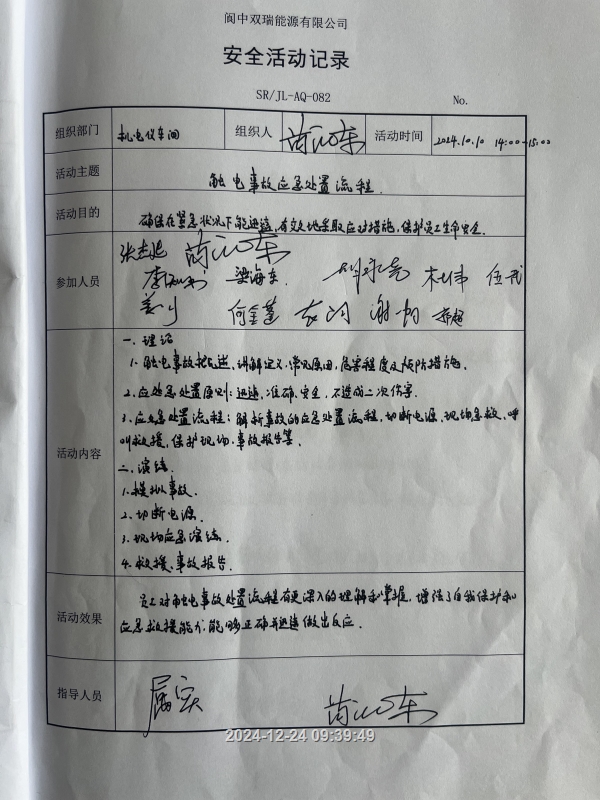 阆中双瑞能源有限公司
安全活动记录
SR/JL-AQ-082
No.
组织部门 机电仪车间 组织人 活动时间 2024.10.10 14:00-15:00
活动主题 触电事故应急处置流程.
活动目的 确保在紧急状况下能迅速,有效地采取应对措施,保护员工生命安全.
参加人员
梁海东 杜伟 伍武
姜 何金莲 谢
活动内容
一.理论
1.触电事故概述、讲解定义,常见原因,危害程度及预防措施.
2.应急处置原则:迅速、准确、安全,不造成二次伤害.
3.应急处置流程:解析事故的应急处置流程,切断电源、现场急救、呼
叫救援、保护现场、事故报告等.
二.演练.
1.模拟事故.
2.切断电源.
3.现场应急演练.
4.救援、事故报告.
活动效果
员工对触电事故处置流程有更深入的理解和掌握,增强了自我保护和
应急救援能力,能够正确并迅速做出反应.
指导人员 属实
2024-12-24 09:39:49